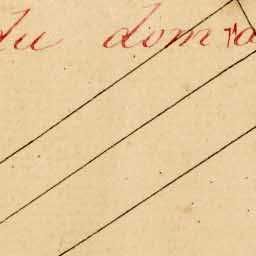 du dom